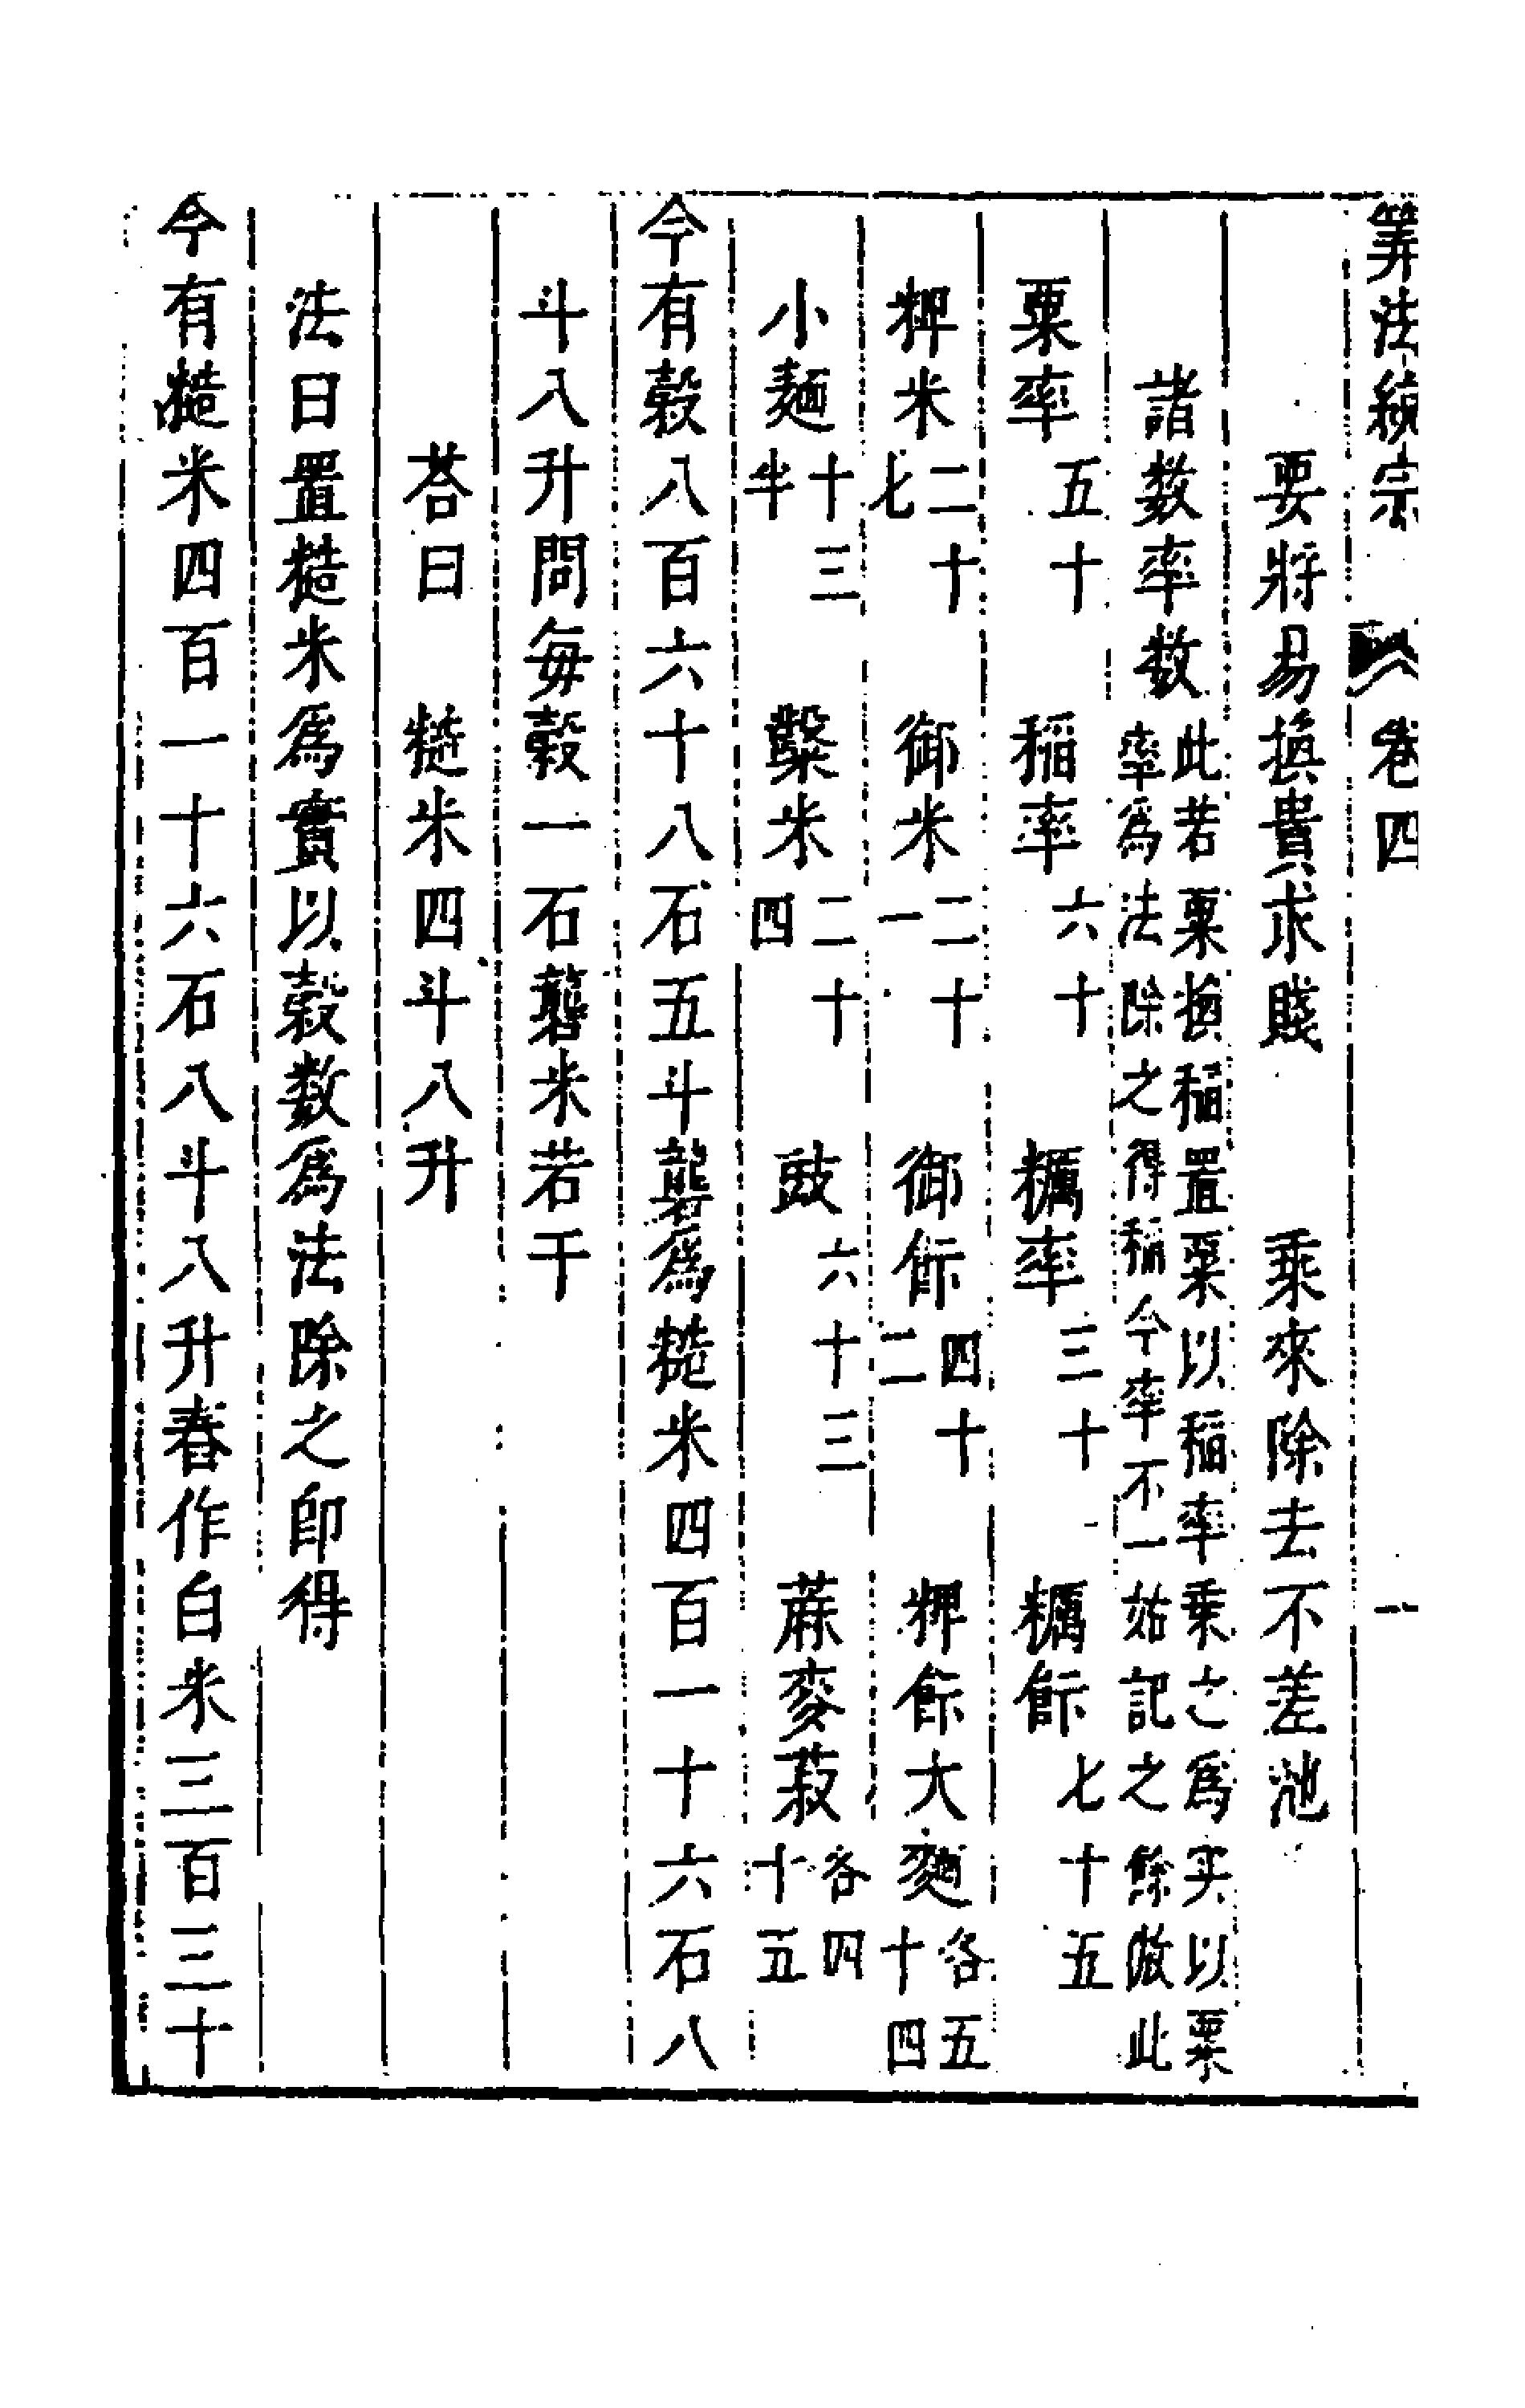 筭法統宗　卷四　一
要將易換貴求賤　乘來除去不差池
諸數率數　此若粟換稻置粟以稻率乘之為实以粟
率為法除之得稻今率不一姑記之餘倣此
粟率五十　稻率六十　糲率三十　糲飰七十五
粺米二十七　御米二十一　御飰四十二　粺飰大麵各五十四
小麵十三半　糳米二十四　豉六十三　蔴麥菽各四十五
今有穀八百六十八石五斗礱為糙米四百一十六石八
斗八升問每穀一石礱米若干
荅曰　糙米四斗八升
法曰置糙米為實以穀數為法除之即得
今有糙米四百一十六石八斗八升舂作白米三百三十